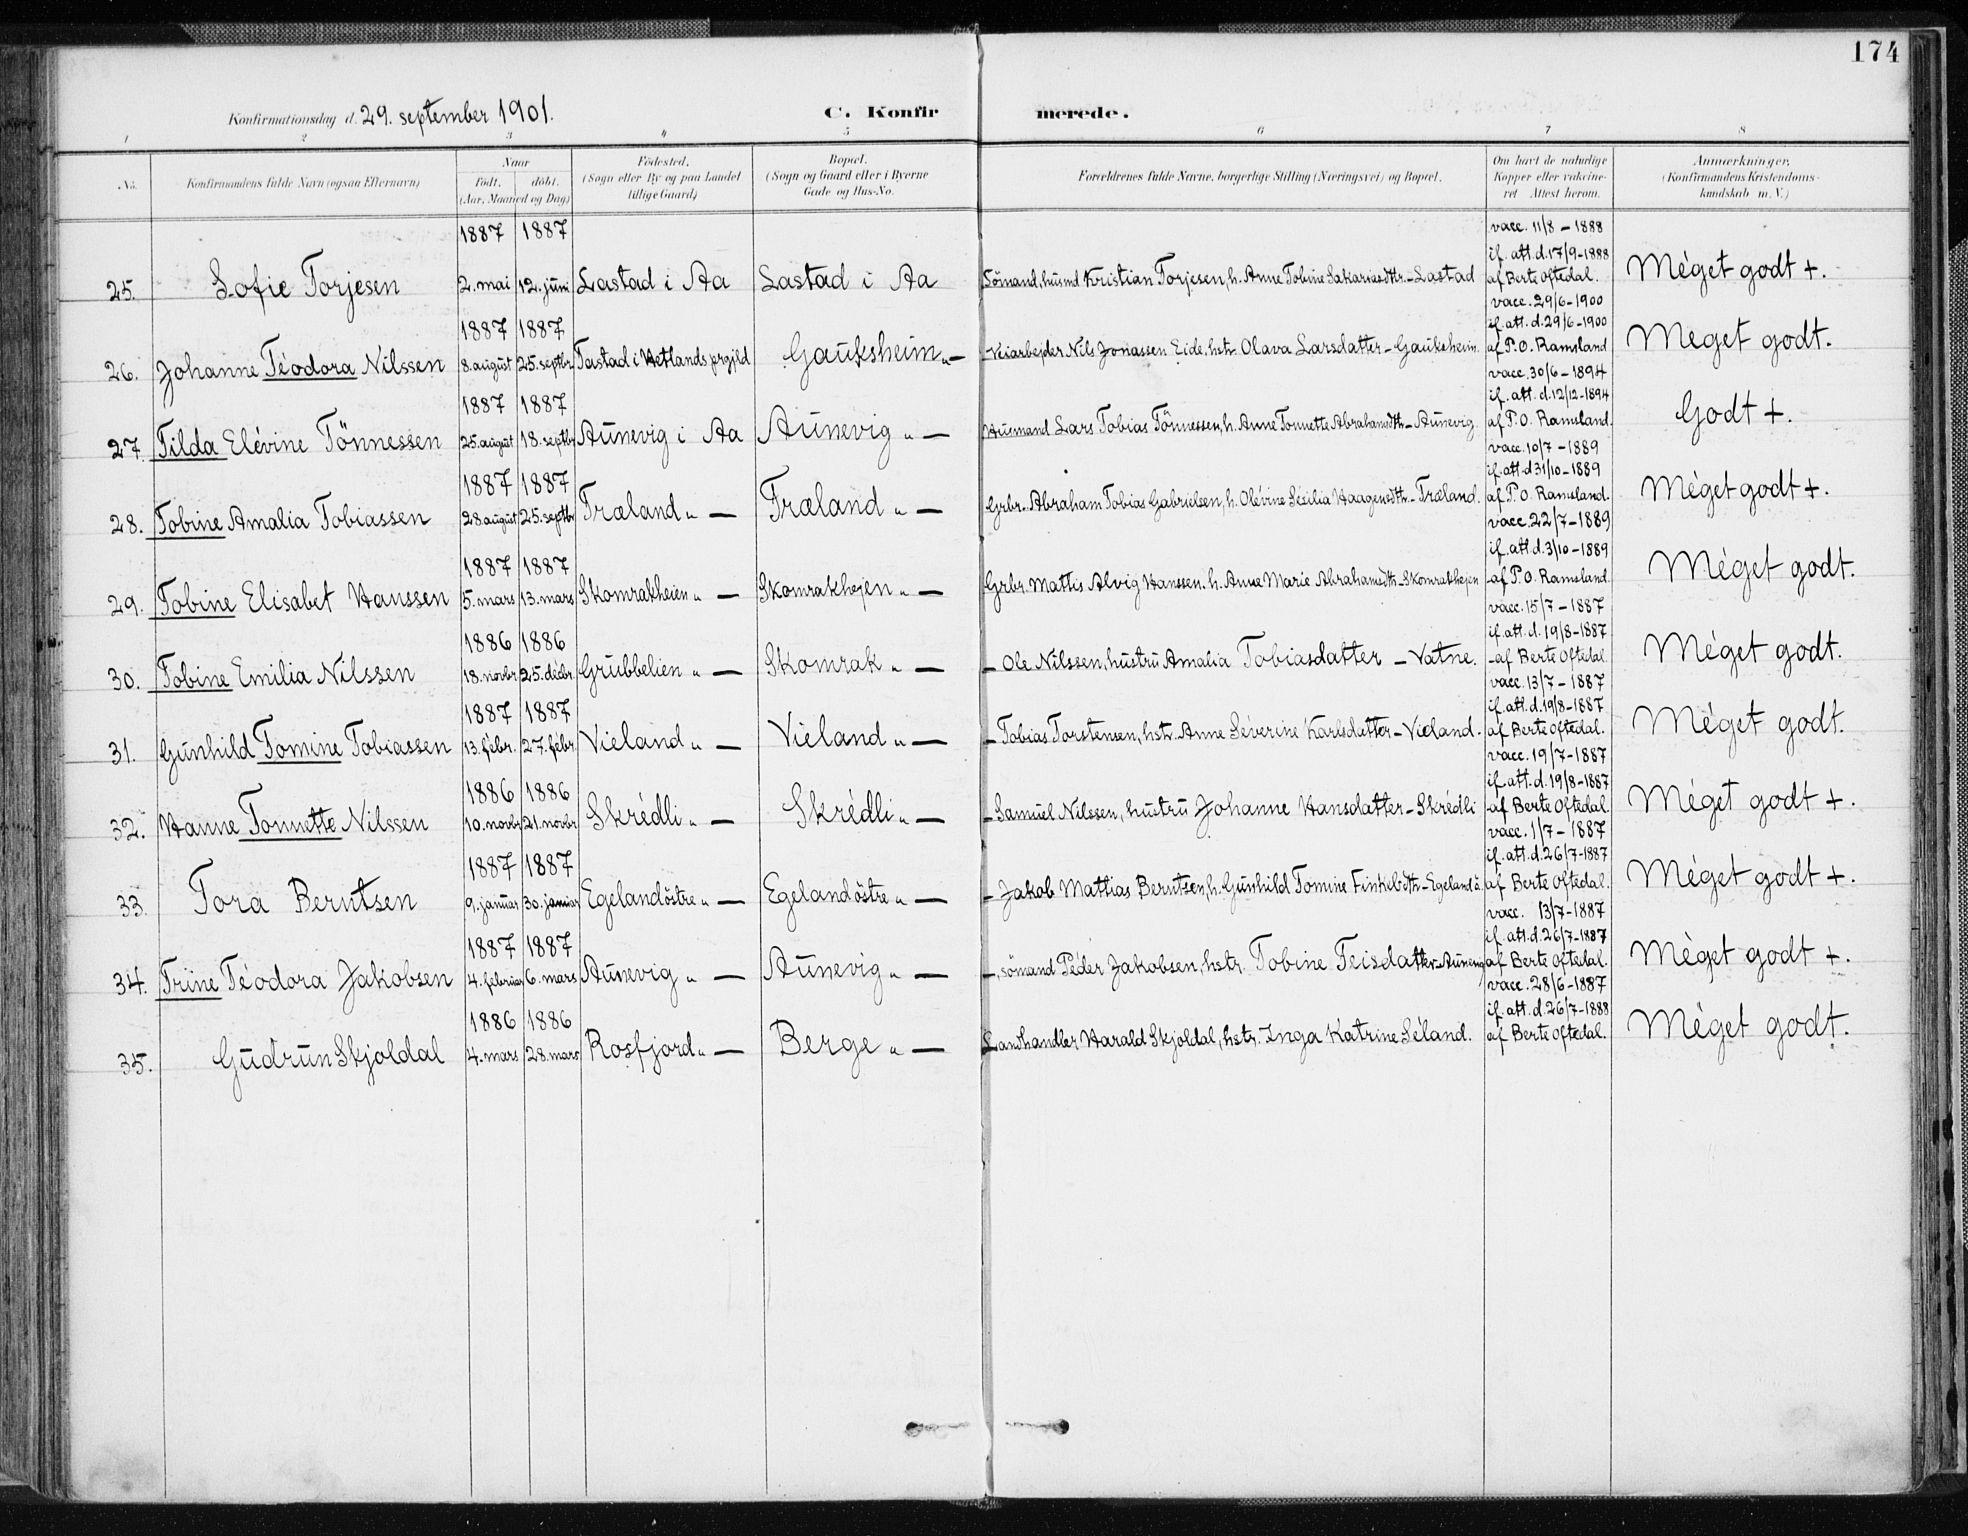 174
Konfirmationsdag d. 29. september 1901. C. Konfirmerede.
1 2 3 4 5 6 7 8
No. Konfirmandens fulde Navn (ogsaa Efternavn) Naar født. døbt. (Aar, Maaned og Dag) Fødested. (Sogn eller By og paa Landet tillige Gaard) Bopæl. (Sogn og Gaard eller i Byerne Gade og Hus-No. Forældrenes fulde Navne, borgerlige Stilling (Næringsvei) og Bopæl. Om havt de naturlige Kopper eller vakcineret Attest herom. Anmærkninger. (Konfirmandens Kristendomskundskab m. V.)
1887 1887 vacc. 11/8 - 1888
if. att. d. 17/9-1888
25. Sofie Torjesen 2. mai 12. juni Lastad i Aa Lastad i Aa Sömand, husmd Kristian Torjesen, h. Anne Tobine Sakariasdtr. - Lastad af Berte Oftedal. Méget godt +.
vacc. 29/6-1900
1887 1887 if. att. d. 29/6-1900
26. Johanne Téodora Nilssen 8. august 25. septbr. Tastad i Hetlands prgjld Gauksheim " — Veiarbejder Nils Jonassen Eide, hstr. Olava Larsdatter - Gauksheim. af P. O. Ramsland Meget godt.
vacc. 30/6-1894
1887 1887 if. att. d. 12/12-1894
27. Tilda Elévine Tönnessen 25. august 18. septbr Aunevig i Aa Aunevig " — Husmand Lars Tobias Tönnessen, h. Anne Tonnette Abrahamsdtr - Aunevig af P. O. Ramsland. Godt +.
vacc. 10/7 - 1889
1887 1887 if. att. d 31/10-1889
28. Tobine Amalia Tobiassen 28. august 25. septbr Træland " — Træland " — Grbr. Abraham Tobias Gabrielsen, h. Olévine Sésilia Haagensdtr. - Træland. af P. O. Ramsland. Méget godt +.
vacc. 22/7-1889
1887 1887 if. att. d. 3/10-1889
29. Tobine Elisabet Hanssen 5. mars 13. mars Skomrakheien " — Skomrakhejen " — Grbr. Mattis Alvig Hanssen. h. Anne Marie Abrahamsdtr - Skomrakhejen af P. O. Ramsland. Méget godt.
vacc. 15/7 - 1887
1886 1886 if. att. d. 19/8-1887
30. Tobine Emilia Nilssen 18. novbr 25. décbr. Grubbelien " — Skomrak " — — Ole Nilssen, hustru Amalia Tobiasdatter - Vatne. af Berte Oftedal. Méget godt.
vacc. 13/7 - 1887
1887 1887 if. att. d. 19/8-1887
31. Gunhild Tomine Tobiassen 13. febr. 27. febr. Vieland " — Vieland " — — Tobias Torstensen, hstr. Anne Séverine Karlsdatter - Vieland. af Berte Oftedal. Méget godt.
vacc. 19/7-1887
1886 1886 if. att. d. 19/8-1887
32. Hanne Tonnette Nilssen 10. novbr 21. novbr Skrédli " — Skrédli " — — Samuel Nilssen, hustru Johanne Hansdatter - Skrédli af Berte Oftedal Méget godt +.
vacc. 1/7 - 1887
1887 1887 if. att. d. 26/7-1887
33. Tora Berntsen 9. januar 30. januar Egeland östre " — Egeland östre " — — Jakob Mattias Berntsen, h. Gunhild Tomine Finkelsdtr - Egeland ö. af Berte Oftedal. Méget godt +.
vacc. 13/7-1887
1887 1887 if. att. d. 26/7-1887
34. Triine Téodora Jakobsen 4. februar 6. mars Aunevig " — Aunevig " — —, sömand Péder Jakobsen, hstr. Tobine Teisdatter - Aunevig af Berte Oftedal. Méget godt +.
vacc. 28/6-1887
1886 1886 if. att. d. 26/7-1888
35. Gudrun Skjoldal 4. mars 28. mars Rosfjord " — Berge " — Landhandler Harald Skjoldal, hstr. Inga Katrine Séland. af Berte Oftedal. Méget godt.